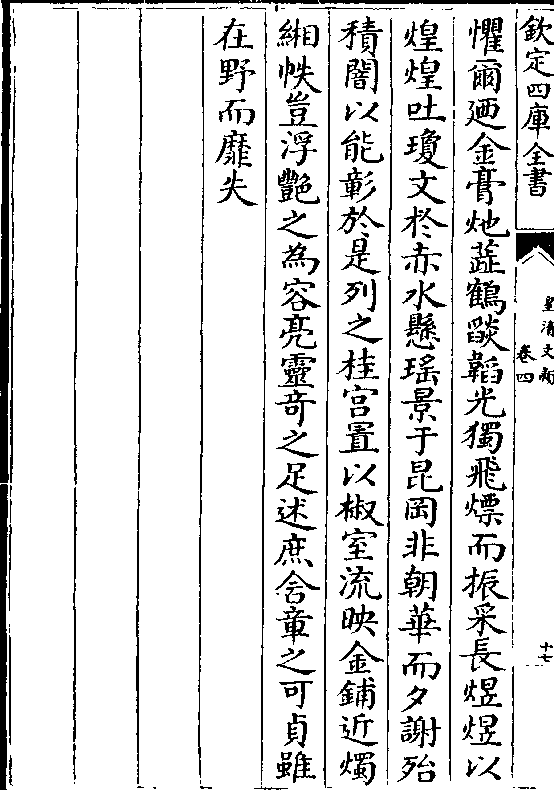 欽定四庫全書
皇清文穎
卷四
十七
懼爾廼金膏灺蘂鶴燄韜光獨飛熛而振采長煜煜以
煌煌吐瓊文於赤水懸瑤景于昆岡非朝華而夕謝殆
積闇以能彰於是列之桂宮置以椒室流映金鋪近燭
緗帙豈浮艷之為容亮靈奇之足述庶含章之可貞雖
在野而靡失